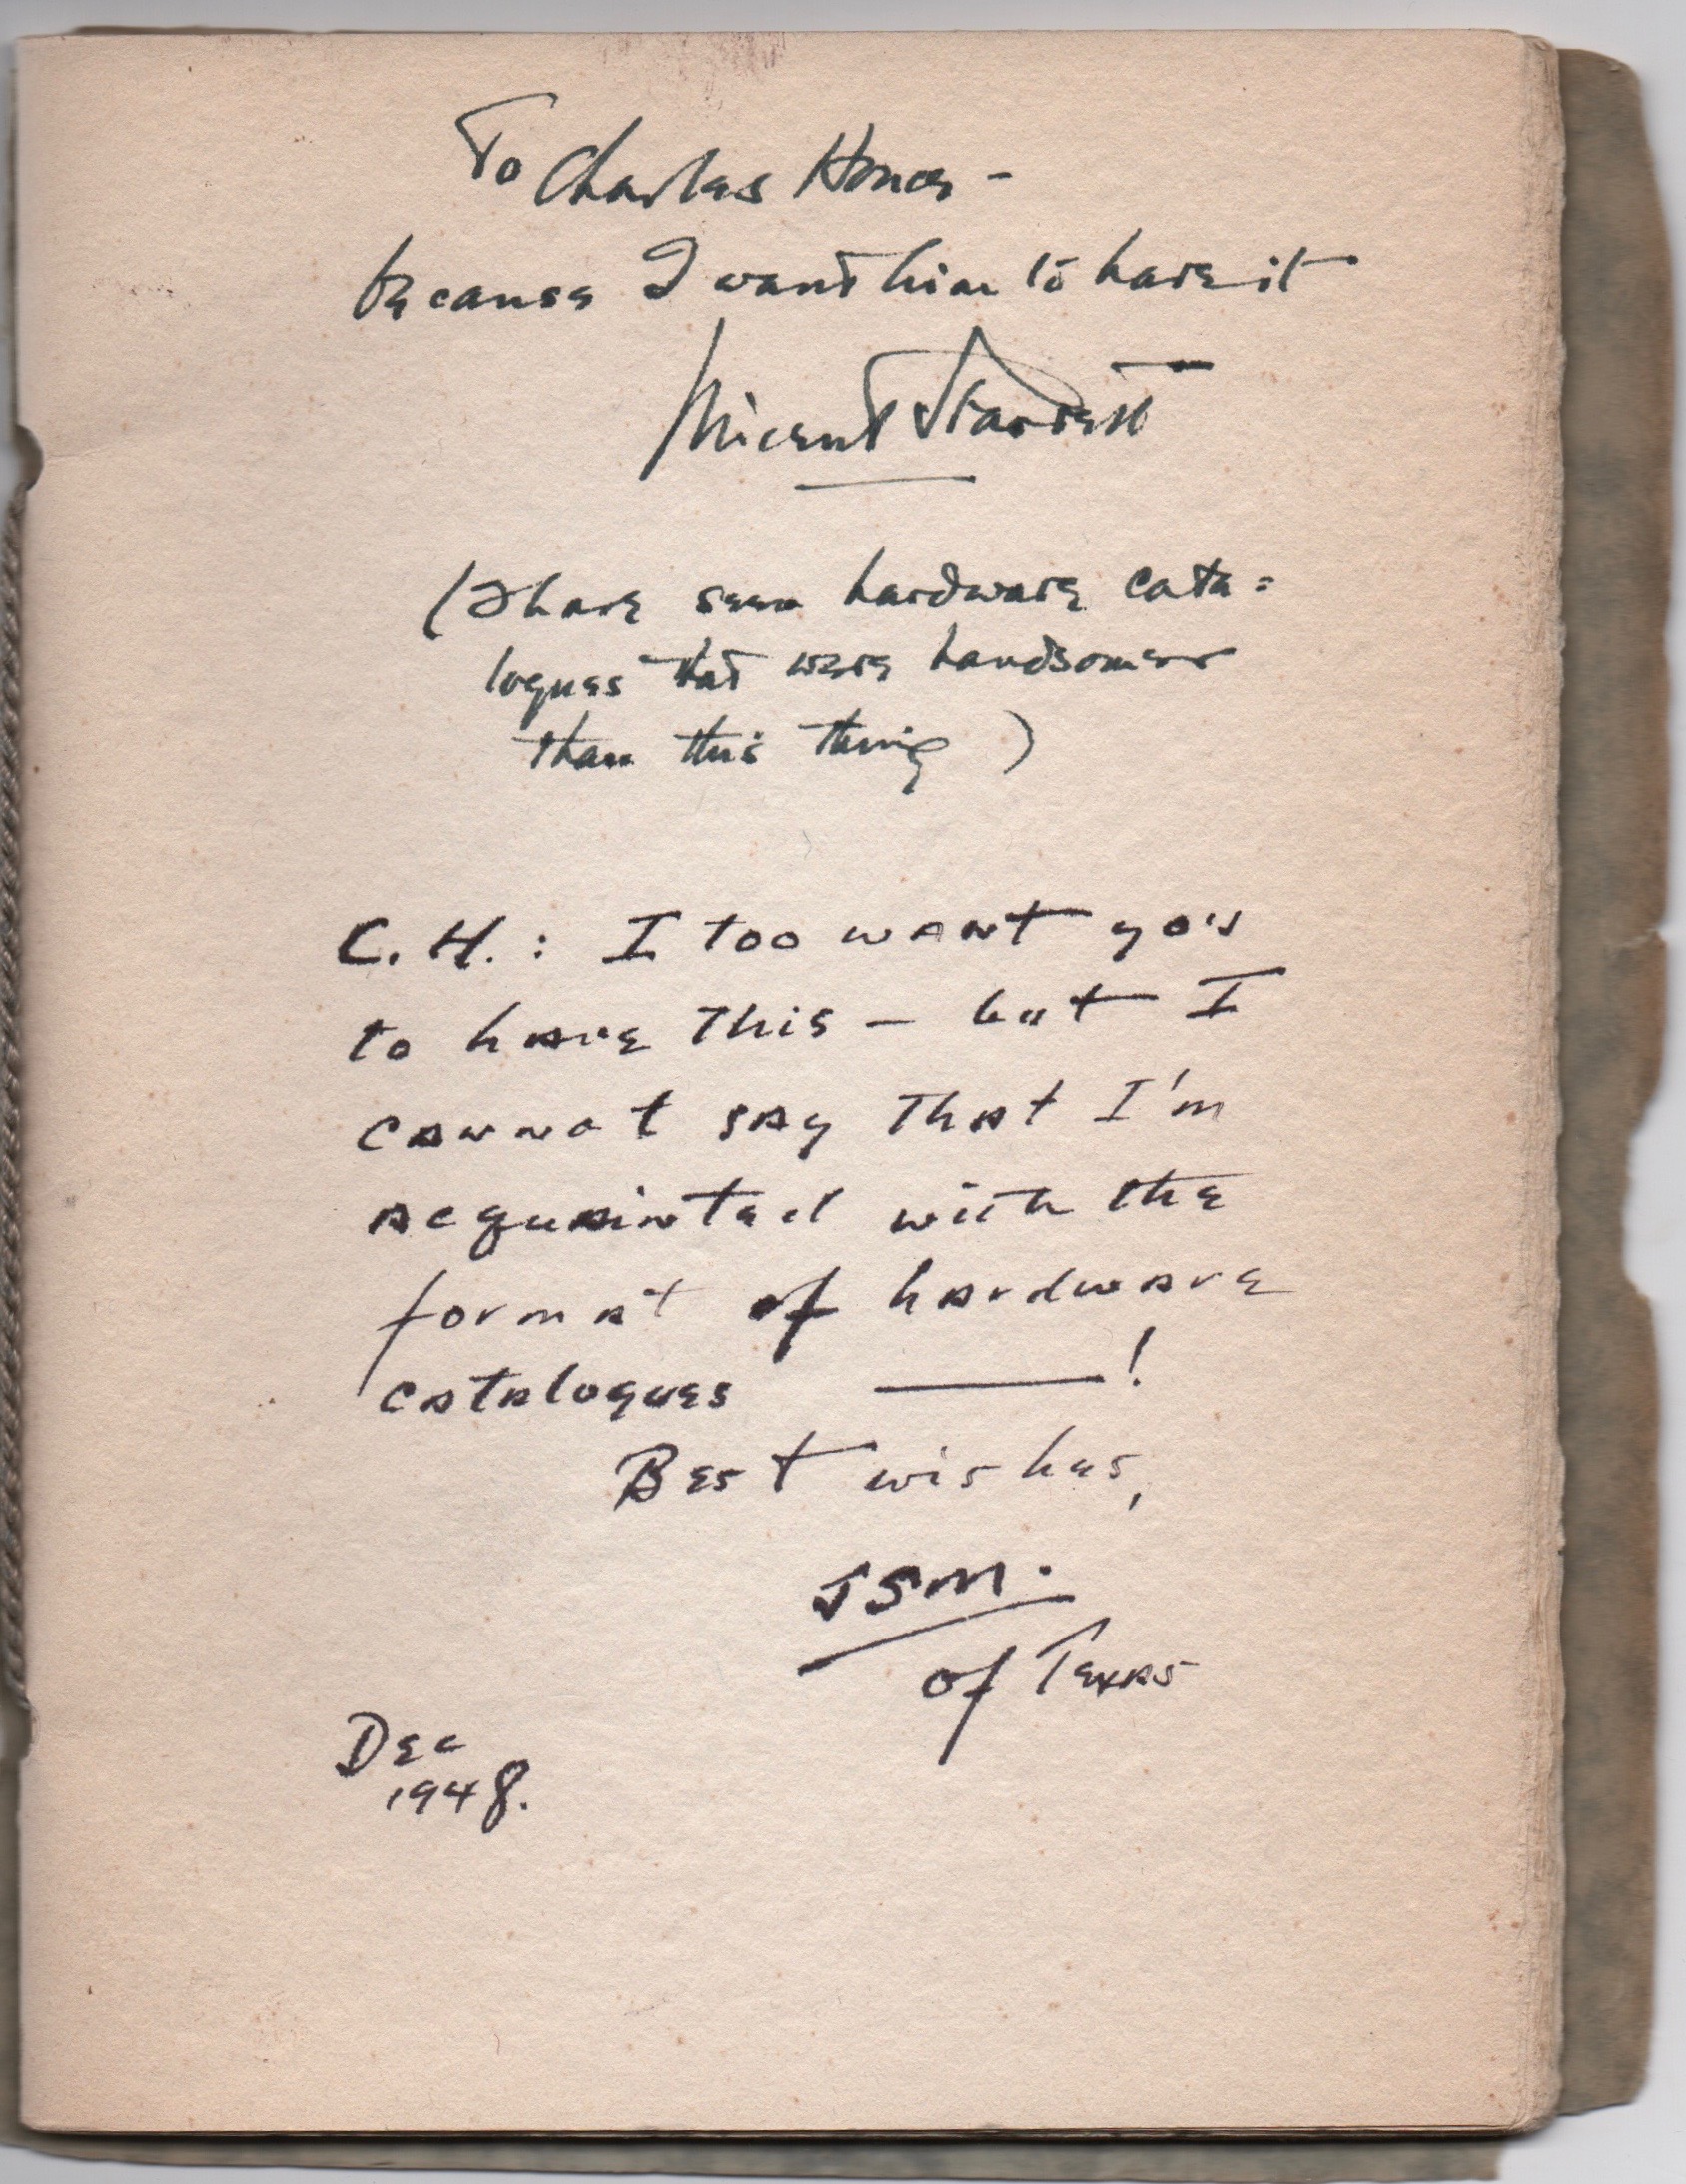 To Charles Honce -
because I want him to have it
Vincent Starrett
(I have seen hardware cata=
logues that were handsomer
than this thing)
C. H.: I too want you
to have this — but I
cannot say that I'm
acquainted with the
format of hardware
catalogues ———!
Best wishes,
JSM.
of Texas
Dec
1948.